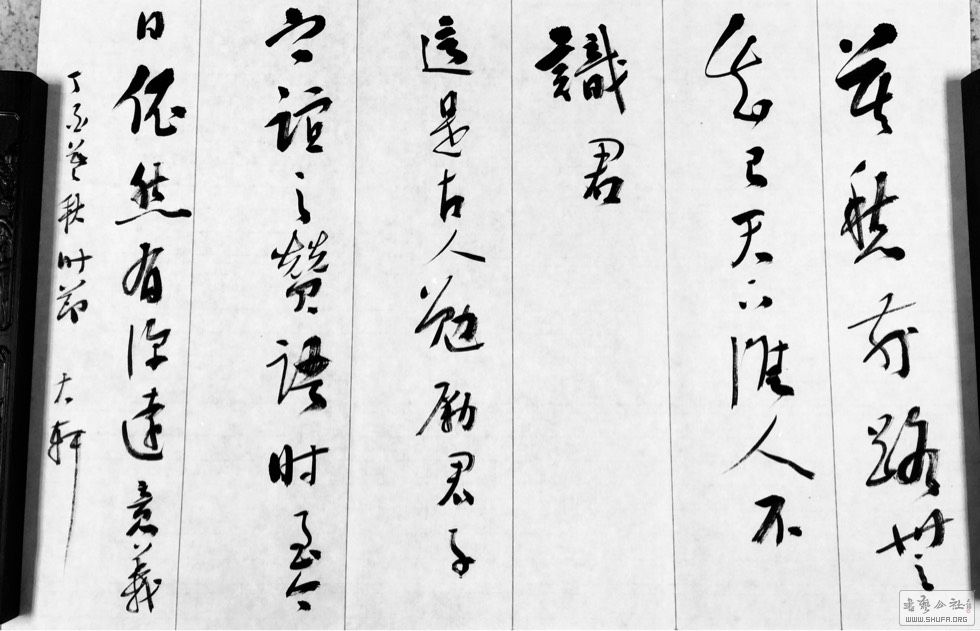 莫愁前路无
知己天下谁人不
識君
这是古人勉励君子
之谊之赞语时至今
日依然有深远意义
丁酉暮秋时节 大轩
书艺公社
WWW.SHUFA.ORG